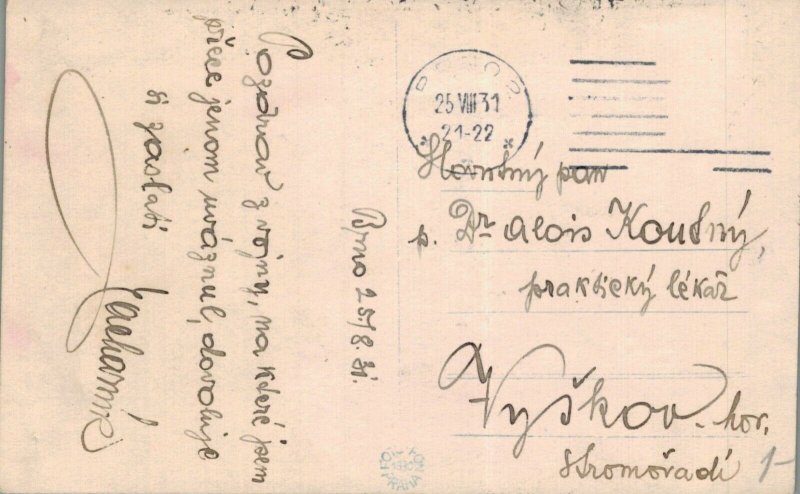 Pozdrav z vojny, na které jsem
přece jenom uváznul, dovoluje
si zaslati
Brno 25/8.31.
BRNO 2
25 VIII 31
21-22
pan
p. Dr Alois Koutný,
praktický lékař
Vyškov. hor.
Stromořadí
1-